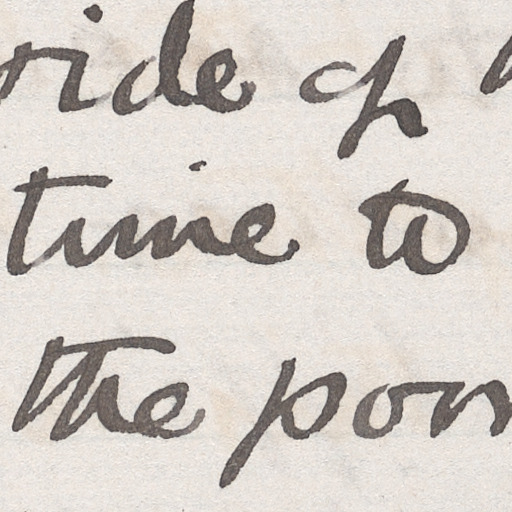 side of
time to
the poor